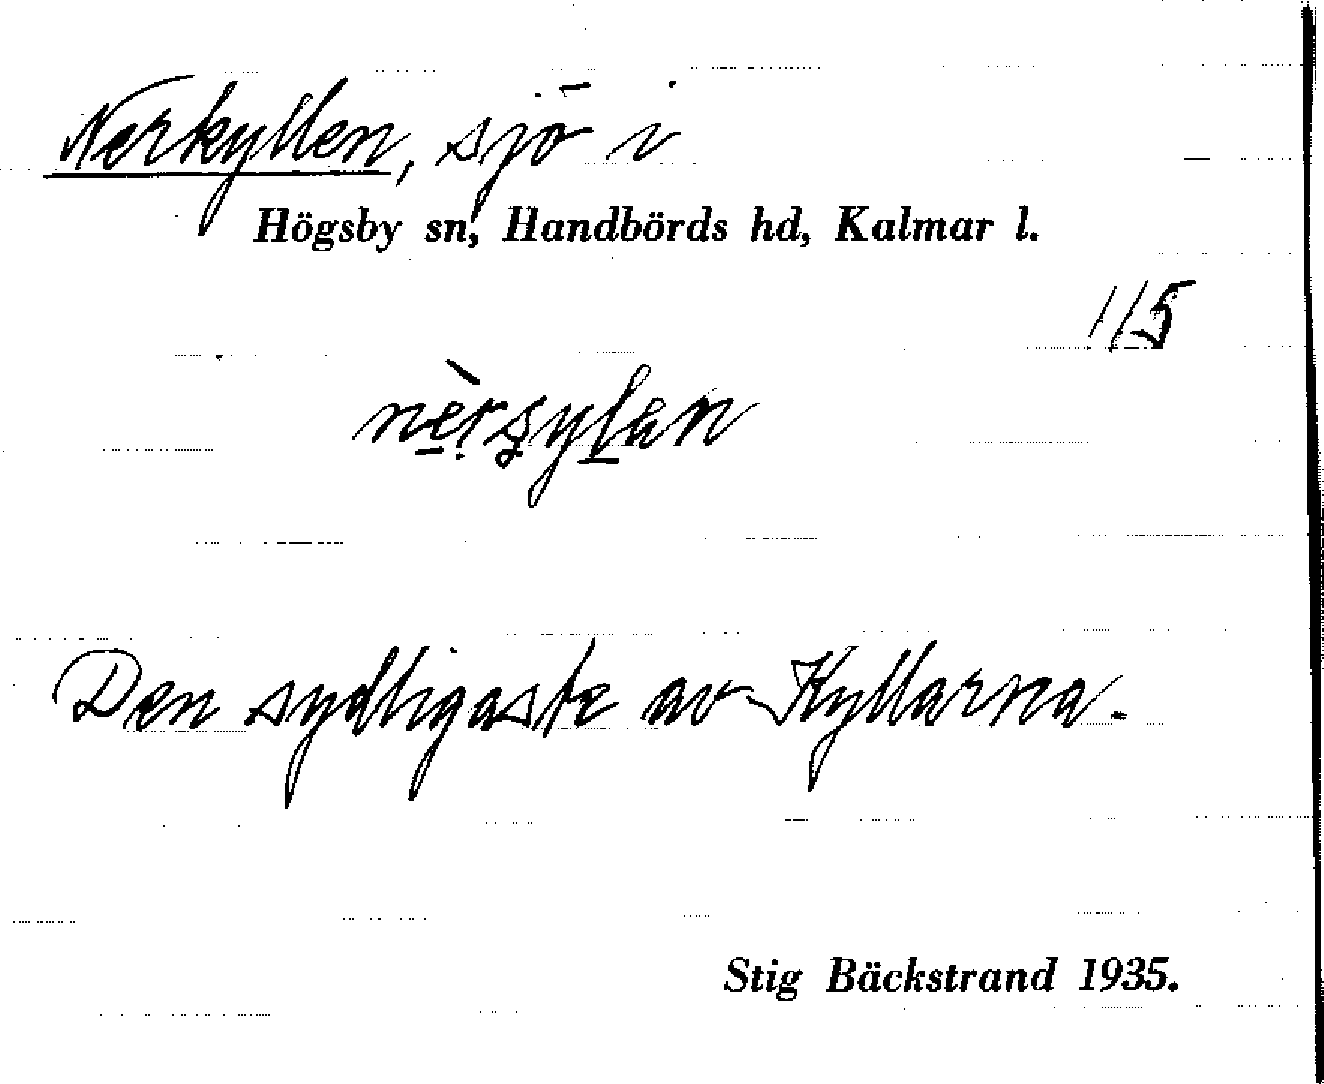 Nerkyllen, sjö i
Högsby sn, Handbörds hd, Kalmar l.
115
nèrşylen
Den sydligaste av Kyllarna.
Stig Bäckstrand 1935.